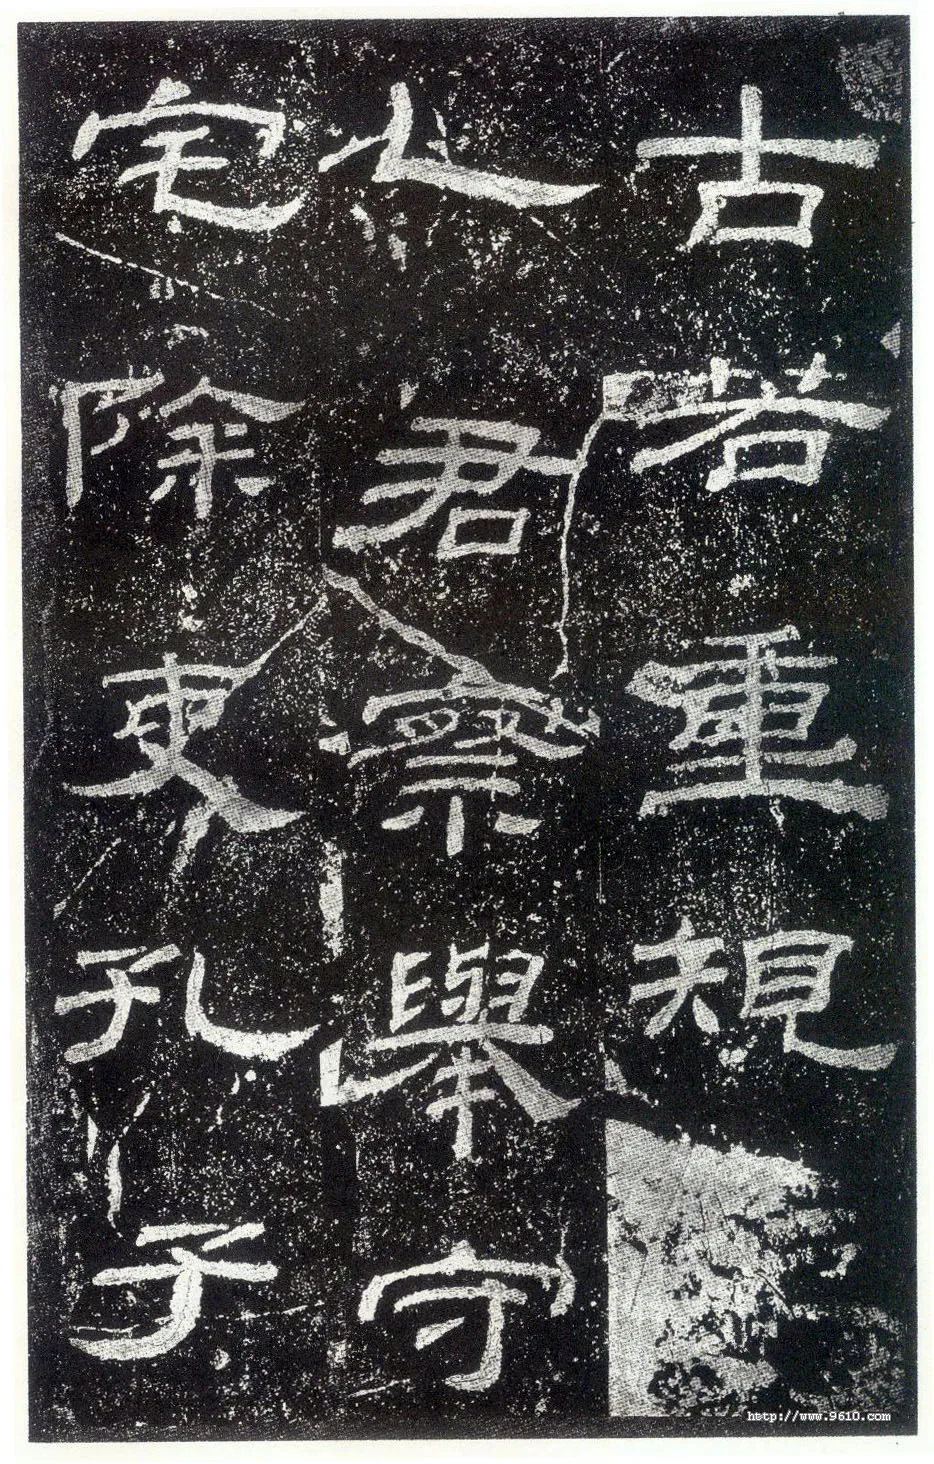 古若重規
乙君察舉守
宅除吏孔子
http://www.9610.com